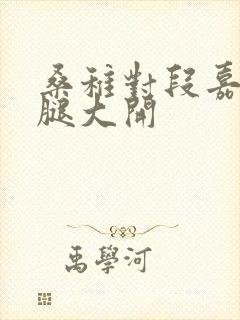 桑稚對段嘉
腿大開
禹學河